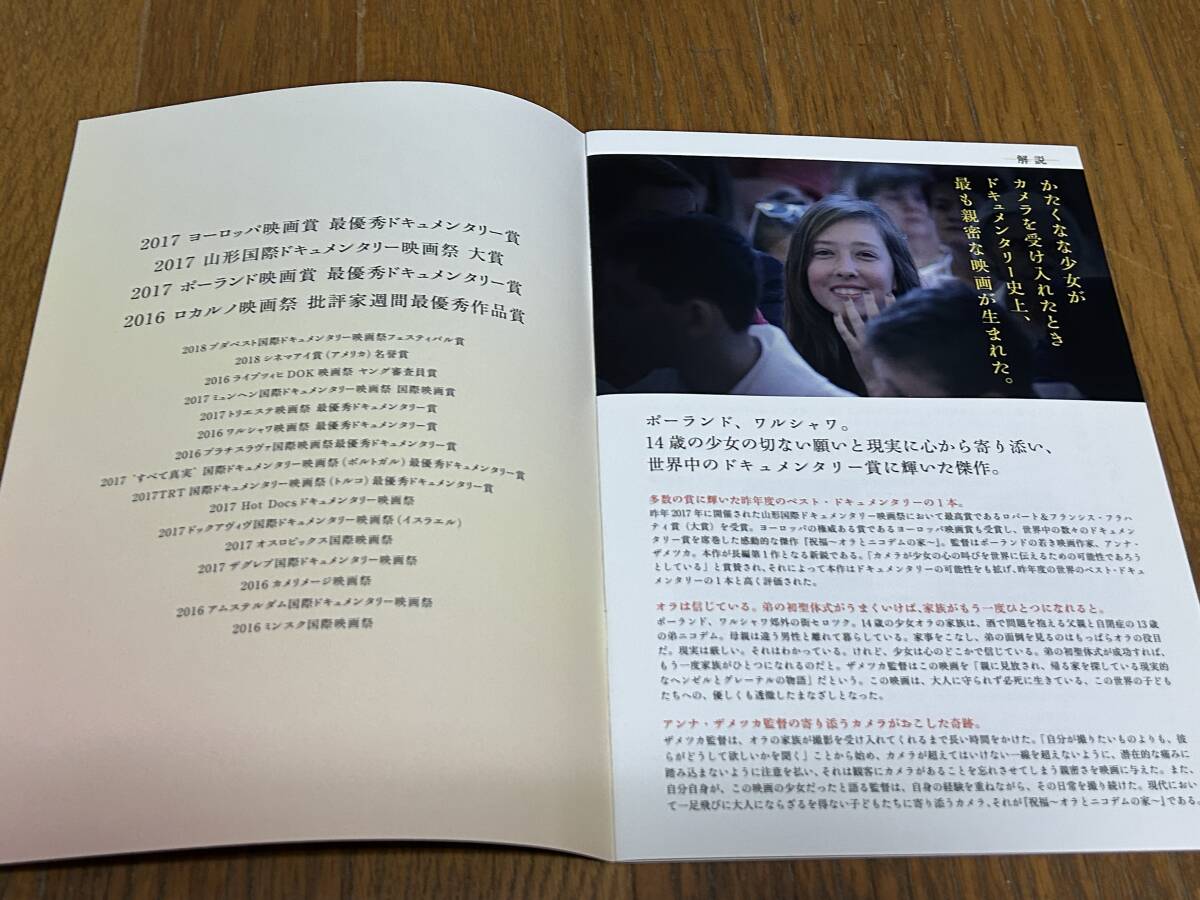 2017 ヨーロッパ映画賞 最優秀ドキュメンタリー賞
2017 山形国際ドキュメンタリー映画祭 大賞
2017 ポーランド映画賞 最優秀ドキュメンタリー賞
2016 ロカルノ映画祭 批評家週間最優秀作品賞
2018 ブダペスト国際ドキュメンタリー映画祭フェスティバル賞
2018 シネマアイ賞(アメリカ)名誉賞
2016 ライプツィヒ DOK 映画祭 ヤング審査員賞
2017 ミュンヘン国際ドキュメンタリー映画祭 国際映画賞
2017 トリエステ映画祭 最優秀ドキュメンタリー賞
2016 ワルシャワ映画祭 最優秀ドキュメンタリー賞
2016 ブラチスラヴァ国際映画祭最優秀ドキュメンタリー賞
2017 “すべて真実” 国際ドキュメンタリー映画祭(ポルトガル)最優秀ドキュメンタリー賞
2017TRT 国際ドキュメンタリー映画祭(トルコ)最優秀ドキュメンタリー賞
2017 Hot Docs ドキュメンタリー映画祭
2017 ドックアヴィヴ国際ドキュメンタリー映画祭(イスラエル)
2017 オスロピックス国際映画祭
2017 ザグレブ国際ドキュメンタリー映画祭
2016 カメリメージ映画祭
2016 アムステルダム国際ドキュメンタリー映画祭
2016 ミンスク国際映画祭
解説
かたくなな少女が
カメラを受け入れたとき
ドキュメンタリー史上、
最も親密な映画が生まれた。
ポーランド、ワルシャワ。
14歳の少女の切ない願いと現実に心から寄り添い、
世界中のドキュメンタリー賞に輝いた傑作。
多数の賞に輝いた昨年度のベスト・ドキュメンタリーの1本。
昨年2017年に開催された山形国際ドキュメンタリー映画祭において最高賞であるロバート&フランシス・フラハ
ティ賞(大賞)を受賞。ヨーロッパの権威ある賞であるヨーロッパ映画賞も受賞し、世界中の数々のドキュメン
タリー賞を席巻した感動的な傑作『祝福〜オラとニコデムの家〜』。監督はポーランドの若き映画作家、アンナ・
ザメツカ。本作が長編第1作となる新鋭である。「カメラが少女の心の叫びを世界に伝えるための可能性であろう
としている」と賞賛され、それによって本作はドキュメンタリーの可能性をも拡げ、昨年度の世界のベスト・ドキュ
メンタリーの1本と高く評価された。
オラは信じている。弟の初聖体式がうまくいけば、家族がもう一度ひとつになれると。
ポーランド、ワルシャワ郊外の街セロツク。14歳の少女オラの家族は、酒で問題を抱える父親と自閉症の13歳
の弟ニコデム。母親は違う男性と離れて暮らしている。家事をこなし、弟の面倒を見るのはもっぱらオラの役目
だ。現実は厳しい。それはわかっている。けれど、少女は心のどこかで信じている。弟の初聖体式が成功すれば、
もう一度家族がひとつになれるのだと。ザメツカ監督はこの映画を「親に見放され、帰る家を探している現実的
なヘンゼルとグレーテルの物語」だという。この映画は、大人に守られず必死に生きている、この世界の子ども
たちへの、優しくも透徹したまなざしとなった。
アンナ・ザメツカ監督の寄り添うカメラがおこした奇跡。
ザメツカ監督は、オラの家族が撮影を受け入れてくれるまで長い時間をかけた。「自分が撮りたいものよりも、彼
らがどうして欲しいかを聞く」ことから始め、カメラが超えてはいけない一線を超えないように、潜在的な痛みに
踏み込まないように注意を払い、それは観客にカメラがあることを忘れさせてしまう親密さを映画に与えた。また、
自分自身が、この映画の少女だったと語る監督は、自身の経験を重ねながら、その日常を撮り続けた。現代におい
て一足飛びに大人にならざるを得ない子どもたちに寄り添うカメラ、それが『祝福〜オラとニコデムの家〜』である。